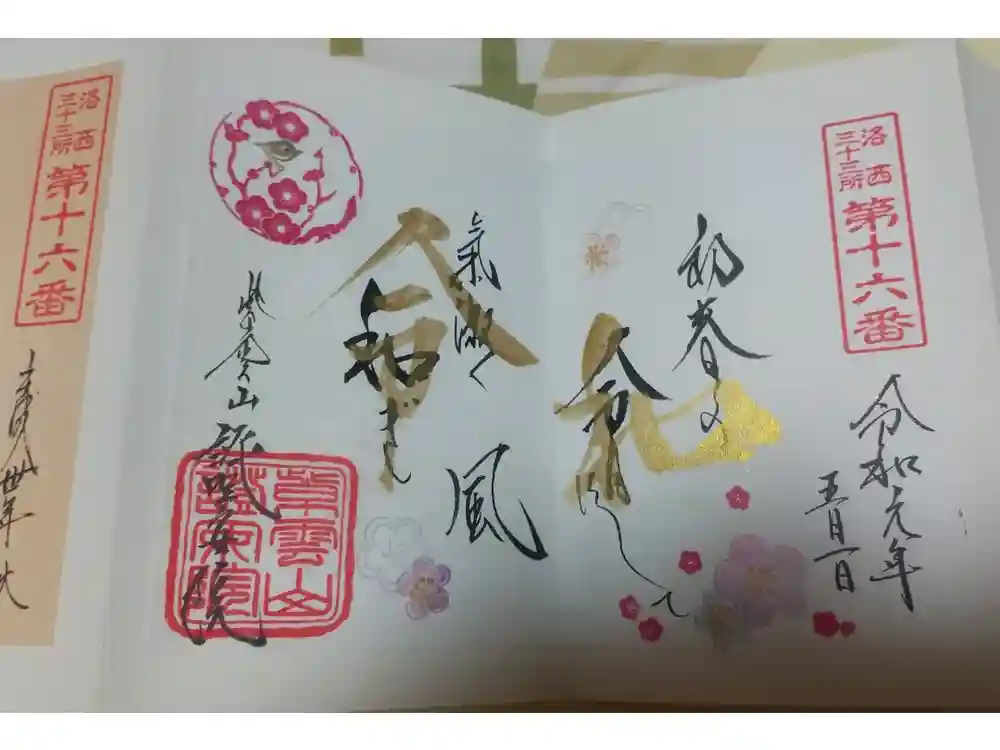 洛西
三十三所
第十六番
令和元年
五月一日
初春の
令月にして
氣淑く風
和ぎ
華雲山
證安院
洛西
三十三所
第十六番